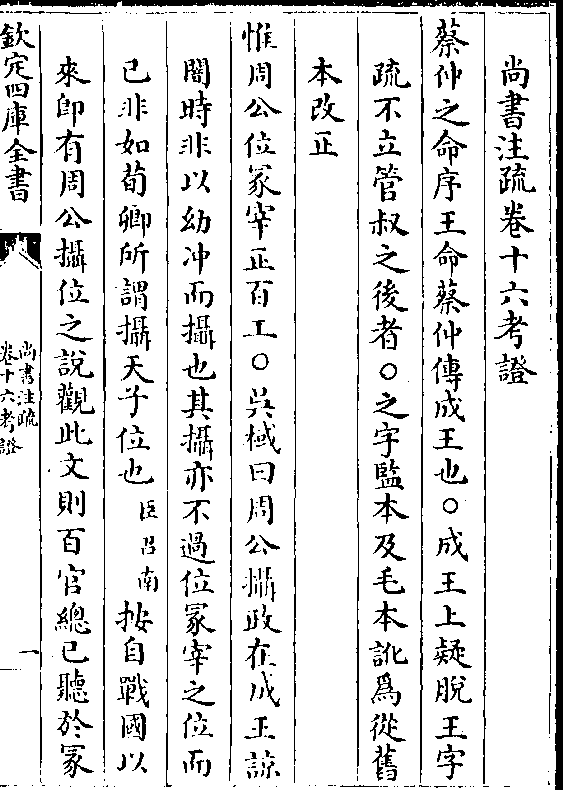 尚書注疏卷十六考證
蔡仲之命序王命蔡仲傳成王也○成王上疑脫王字
疏不立管叔之後者○之字監本及毛本訛爲從舊
本改正
惟周公位冢宰正百工○吳棫曰周公攝政在成王諒
闇時非以幼冲而攝也其攝亦不過位冢宰之位而
已非如荀卿所謂攝天子位也臣召南按自戰國以
來卽有周公攝位之說觀此文則百官總已聽於冢
欽定四庫全書
尚書注疏
卷十六考證
一